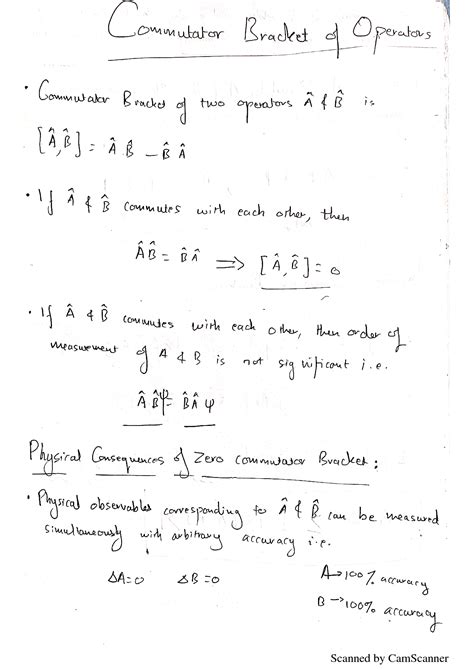 Commutator Bracket of Operators
• Commutator Bracket of two operators Â & B̂ is
[Â, B̂] = Â B̂ - B̂ Â
• If Â & B̂ commutes with each other, then
ÂB̂ = B̂Â ⟹ [Â, B̂] = 0
• If Â & B̂ commutes with each other, then order of
measurement of A & B is not significant i.e.
Â B̂ψ = B̂Â ψ
Physical Consequences of Zero commutator Bracket:
• Physical observables corresponding to Â & B̂ can be measured
simultaneously with arbitrary accuracy i.e.
ΔA=0 ΔB=0 A→100% accuracy
B→100% accuracy
Scanned by CamScanner